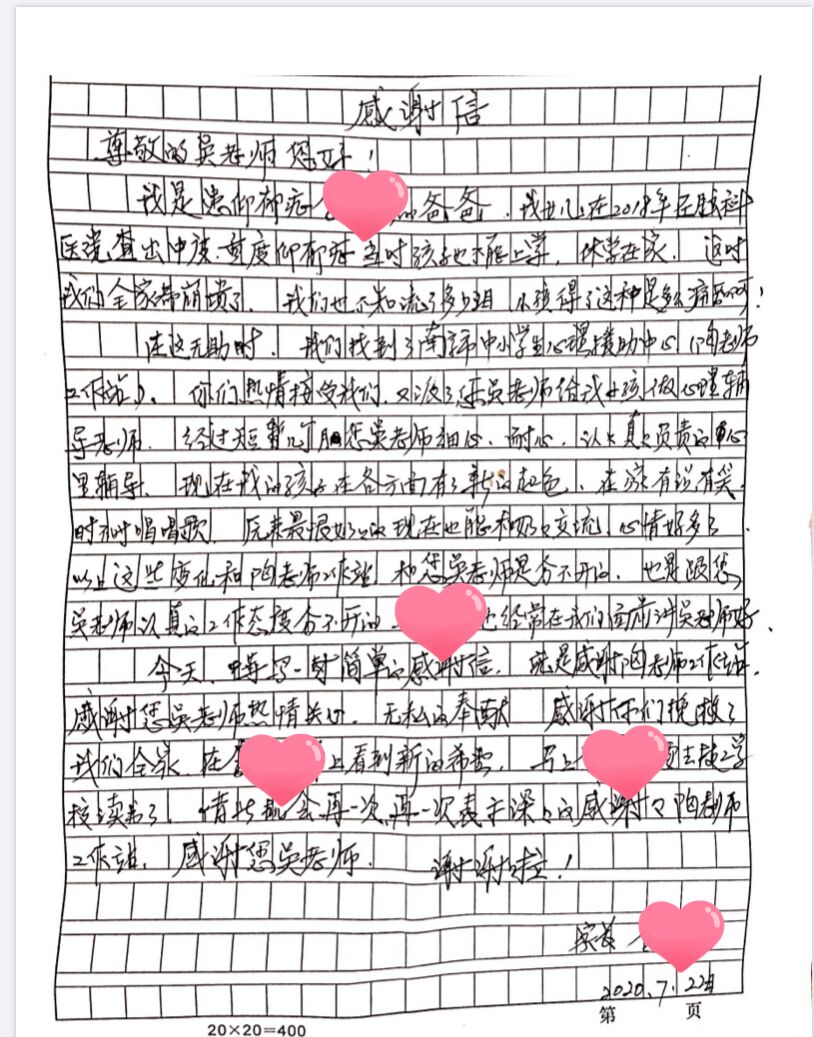 感谢信
尊敬的吴老师您好！
我是患仰郁症的爸爸，我女儿在2018年在脑科
医院查出中度、重度仰郁症当时孩子也不能上学，休学在家。这时
我们全家都崩溃了，我们也不知流了多少泪，不懂得了这种是多么痛苦啊！
在这无助时，我们找到了南京市中小学生心理援助中心（陶老师
工作站）。你们热情接受我们，又派了您吴老师给我女孩做心理辅
导老师。经过短暂几个月您吴老师细心、耐心、认认真真负责的心
里辅导，现在我的孩子在各方面有了新的起色，在家有说有笑，
时不时唱唱歌，原来最恨奶奶现在也能和奶奶交流，心情好多了，
以上这些变化和陶老师工作站和您吴老师是分不开的，也是跟您
吴老师认真的工作态度分不开的 也经常在我们面前讲吴老师好，
今天，特写一封简单的感谢信，就是感谢陶老师工作站，
感谢您吴老师热情关心，无私的奉献 感谢你们挽救了
我们全家，在 上看到新的希望，马上 要去技工学
校读书了，借此机会再一次，再一次表示深深的感谢谢陶老师
工作站，感谢您吴老师。 谢谢啦！
家长
2020.7.22日
第 页
20×20=400